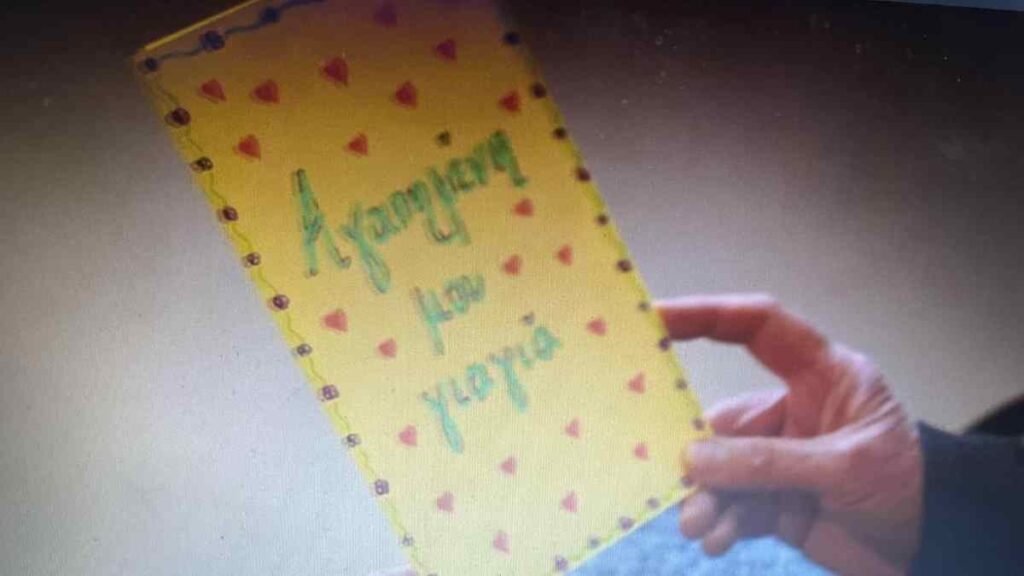 Αγαπημένη
μου
γιαγιά